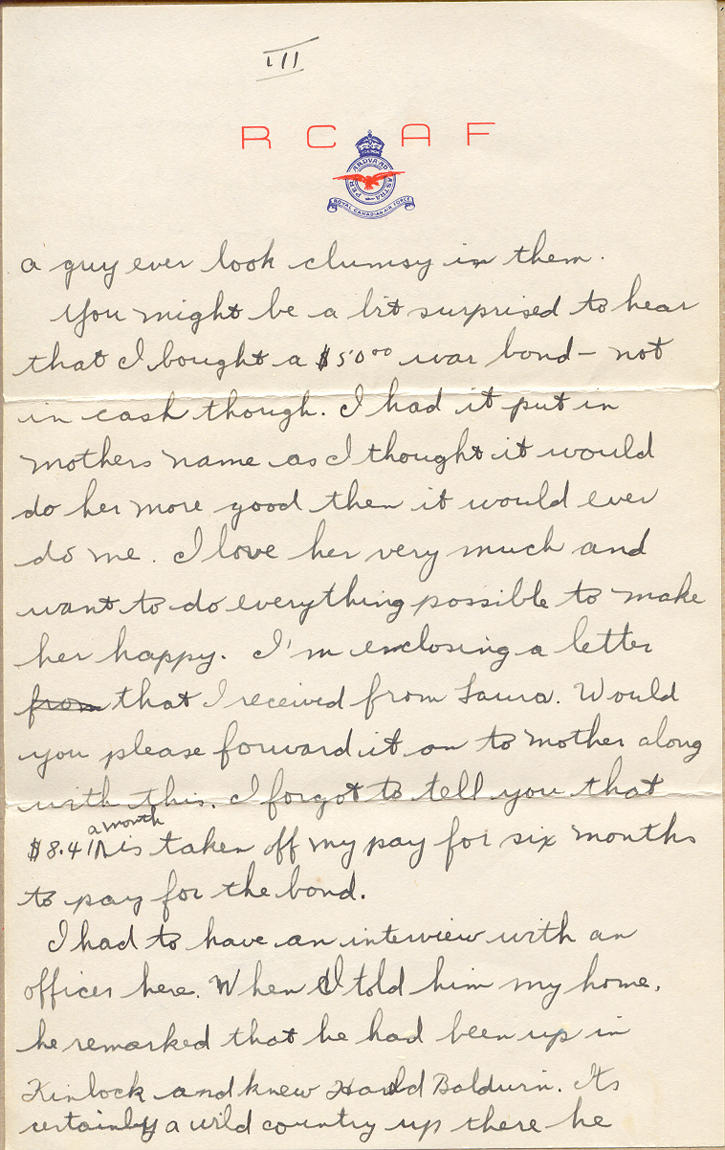 III
R C A F
PER ARDVA AD ASTRA
ROYAL CANADIAN AIR FORCE
a guy ever look clumsy in them.
You might be a bit surprised to hear
that I bought a $50⁰⁰ war bond – not
in cash though. I had it put in
mothers name as I thought it would
do her more good then it would ever
do me. I love her very much and
want to do everything possible to make
her happy. I'm enclosing a letter
from that I received from Laura. Would
you please forward it on to mother along
with this. I forgot to tell you that
a month
$8.41 is taken off my pay for six months
to pay for the bond.
I had to have an interview with an
officer here. When I told him my home,
he remarked that he had been up in
Kinlock and knew Harold Baldwin. Its
certainly a wild country up there he